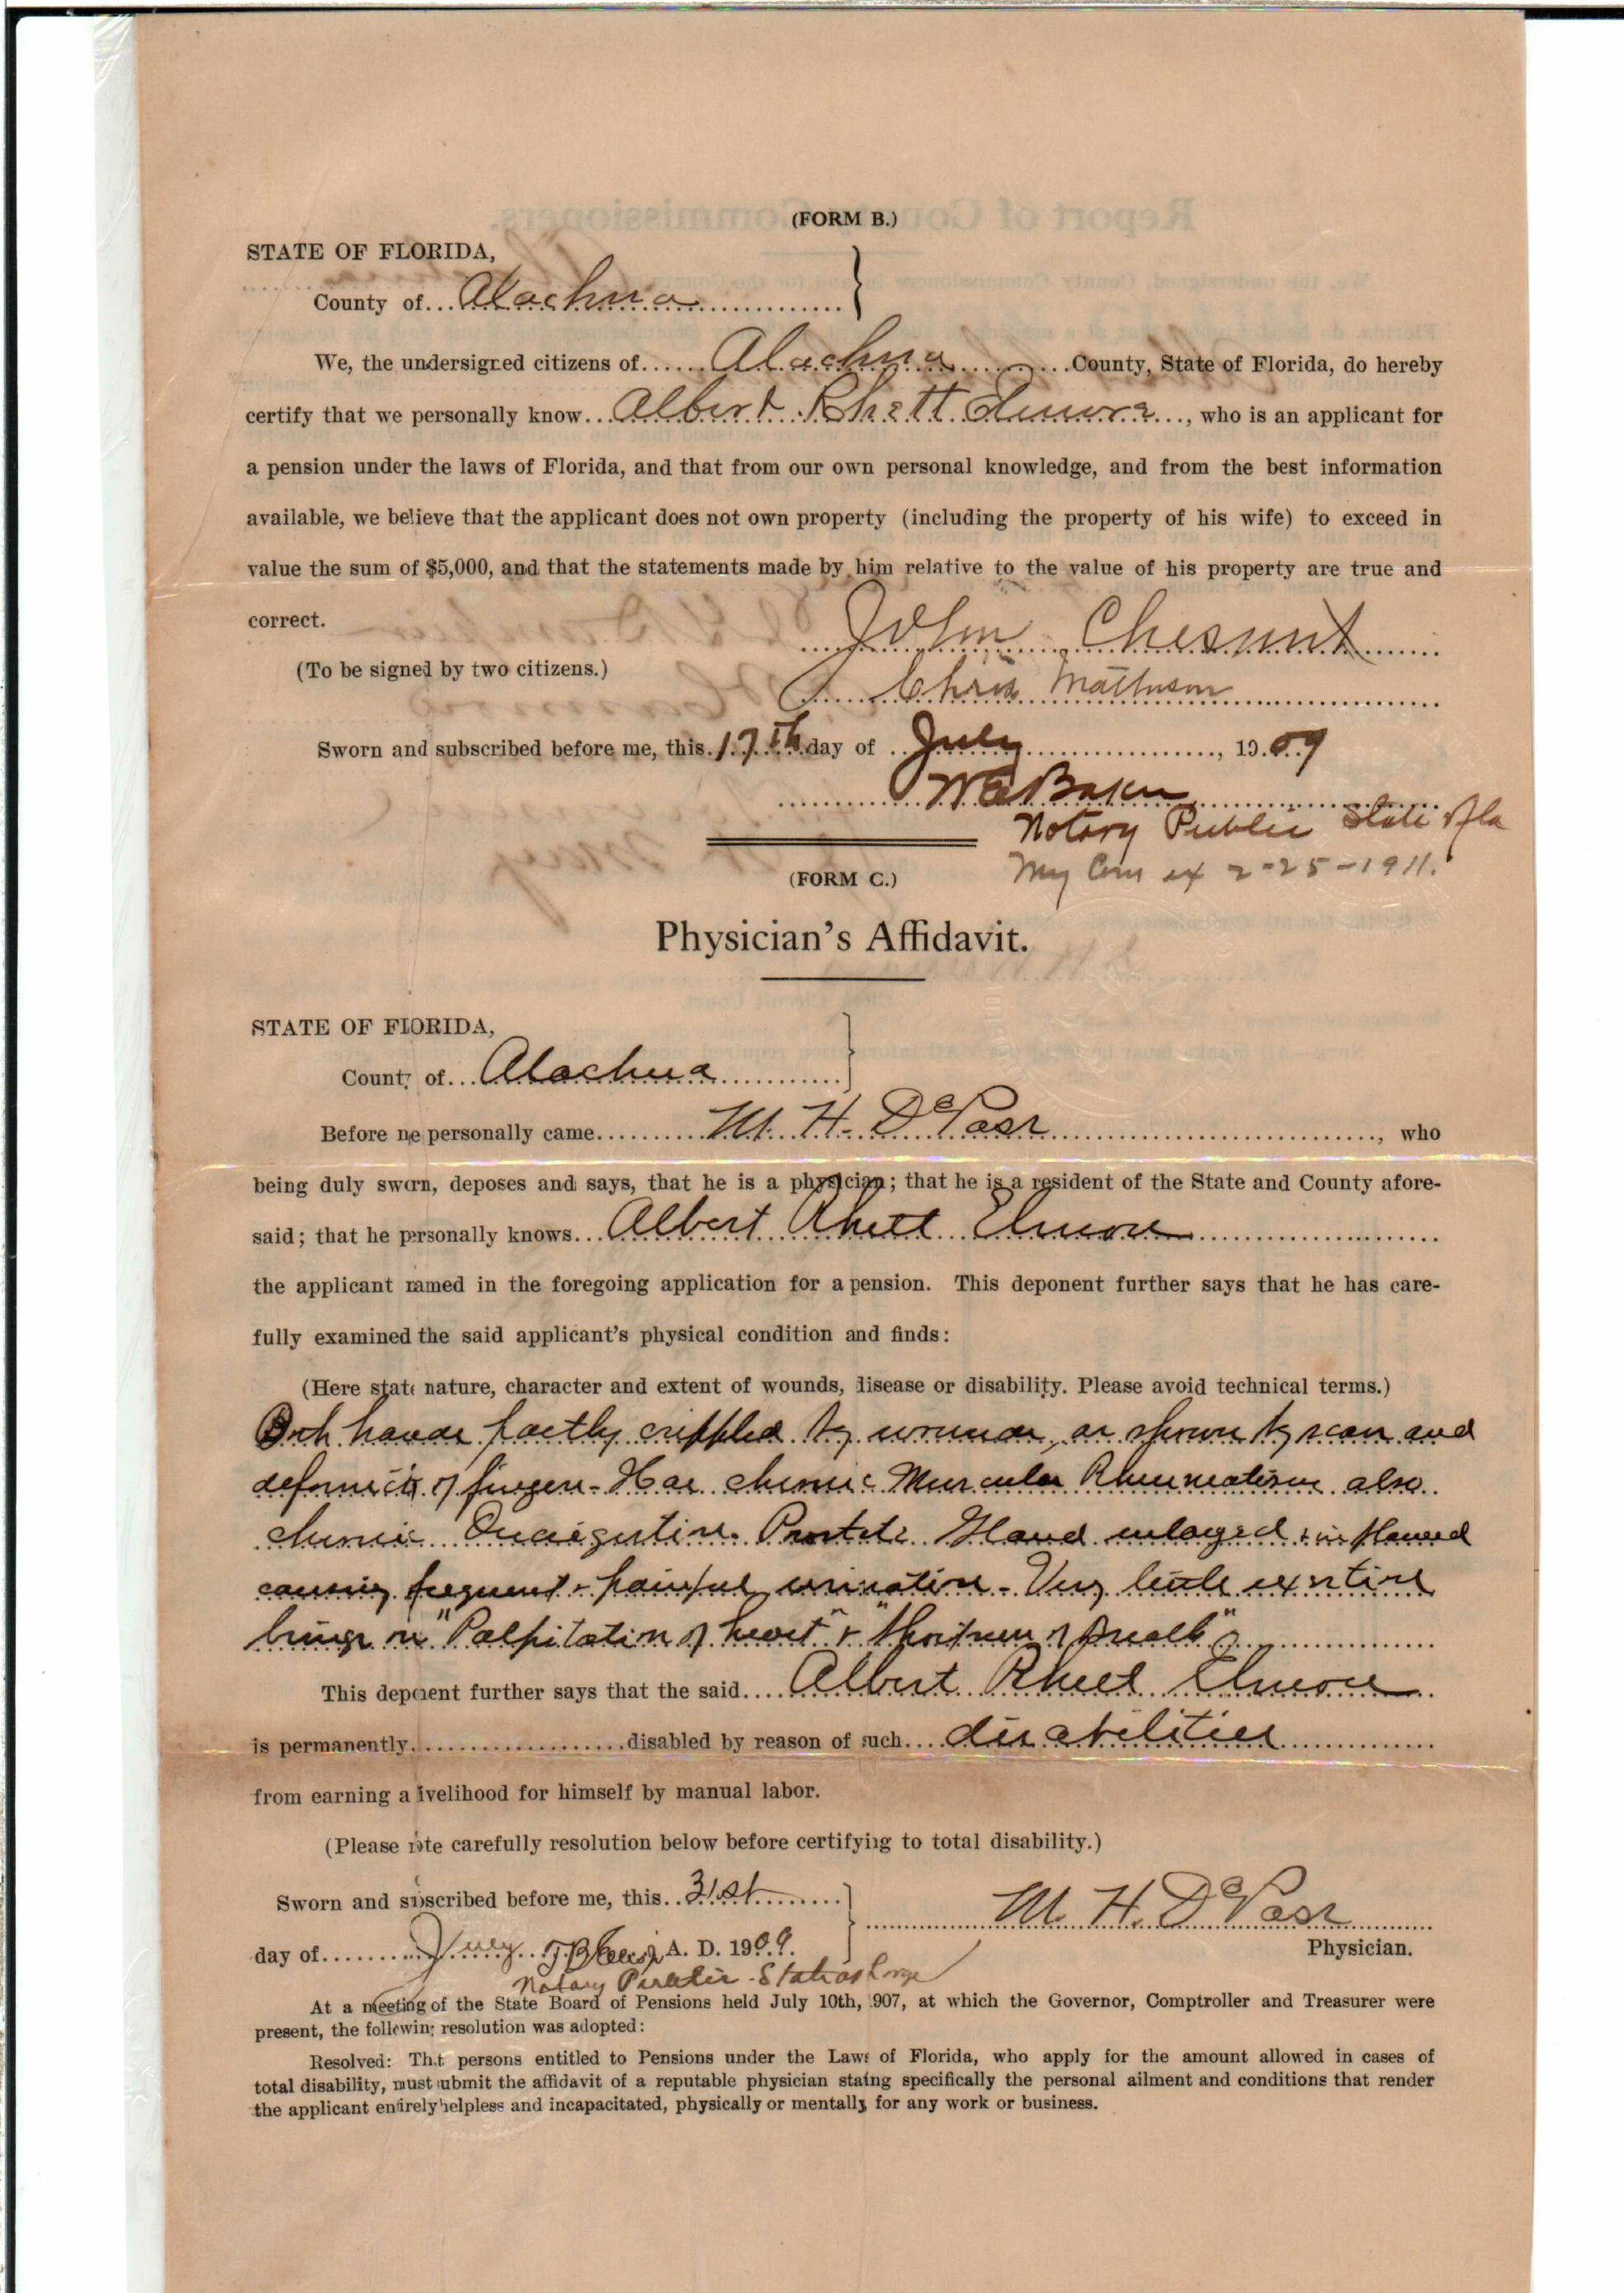 (FORM B.)
STATE OF FLORIDA,
County of Alachua
We, the undersigned citizens of Alachua County, State of Florida, do hereby
certify that we personally know Albert Rhett Elmore, who is an applicant for
a pension under the laws of Florida, and that from our own personal knowledge, and from the best information
available, we believe that the applicant does not own property (including the property of his wife) to exceed in
value the sum of $5,000, and that the statements made by him relative to the value of his property are true and
correct.
John Chesnut
(To be signed by two citizens.)
Chris Matheson
Sworn and subscribed before me, this 17th day of July, 1909
Notary Public State Fla
My Com ex 2-25-1911.
(FORM C.)
Physician's Affidavit.
STATE OF FLORIDA,
County of Alachua
Before me personally came M. H. DePass, who
being duly sworn, deposes and says, that he is a physician; that he is a resident of the State and County afore-
said; that he personally knows Albert Rhett Elmore
the applicant named in the foregoing application for a pension. This deponent further says that he has care-
fully examined the said applicant's physical condition and finds:
(Here state nature, character and extent of wounds, disease or disability. Please avoid technical terms.)
Both hands partly crippled by wounds, as shown by scars and
deformity of fingers - Has chronic Muscular Rheumatism also
chronic Indigestion. Prostate Gland enlarged & inflamed
causing frequent & painful urination - Very little exertion
brings on "Palpitation of heart" & "Shortness of Breath"
This deponent further says that the said Albert Rhett Elmore
is permanently disabled by reason of such disabilities
from earning a livelihood for himself by manual labor.
(Please note carefully resolution below before certifying to total disability.)
Sworn and subscribed before me, this 31st
M. H. DePass
day of July A. D. 1909.
Physician.
Notary Public - State at Large
At a meeting of the State Board of Pensions held July 10th, 1907, at which the Governor, Comptroller and Treasurer were
present, the following resolution was adopted:
Resolved: That persons entitled to Pensions under the Laws of Florida, who apply for the amount allowed in cases of
total disability, must submit the affidavit of a reputable physician stating specifically the personal ailment and conditions that render
the applicant entirely helpless and incapacitated, physically or mentally for any work or business.